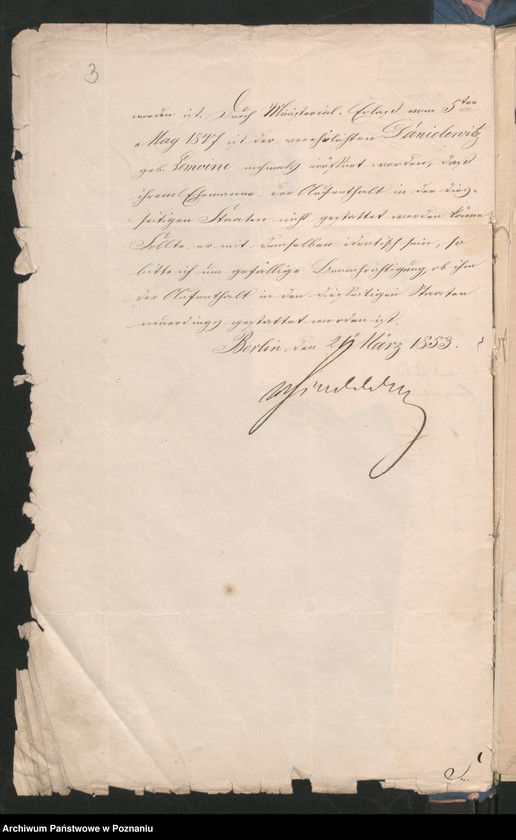 3
worden ist. Durch Ministerial-Erlaß vom 5ten
May 1847 ist der verehelichten Danielewitz
geb. Lemoine nochmals eröffnet worden, daß
ihrem Ehemanne der Aufenthalt in den dies-
seitigen Staaten nicht gestattet werden könne
Sollte er mit demselben identisch sein, so
bitte ich um gefällige Benachrichtigung, ob ihm
der Aufenthalt in den diesseitigen Staaten
neuerdings gestattet worden ist.
Berlin, den 26 März 1853.
Archiwum Państwowe w Poznaniu